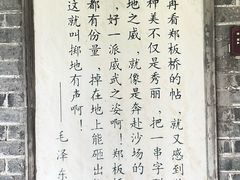 再看郑板桥的帖,就又感到
种美不仅是秀丽,把一串字
地之威,就像是奔赴沙场的
,好一派威武之姿啊!郑板
都有份量,掉在地上能砸出
这就叫掷地有声啊!
——毛泽东